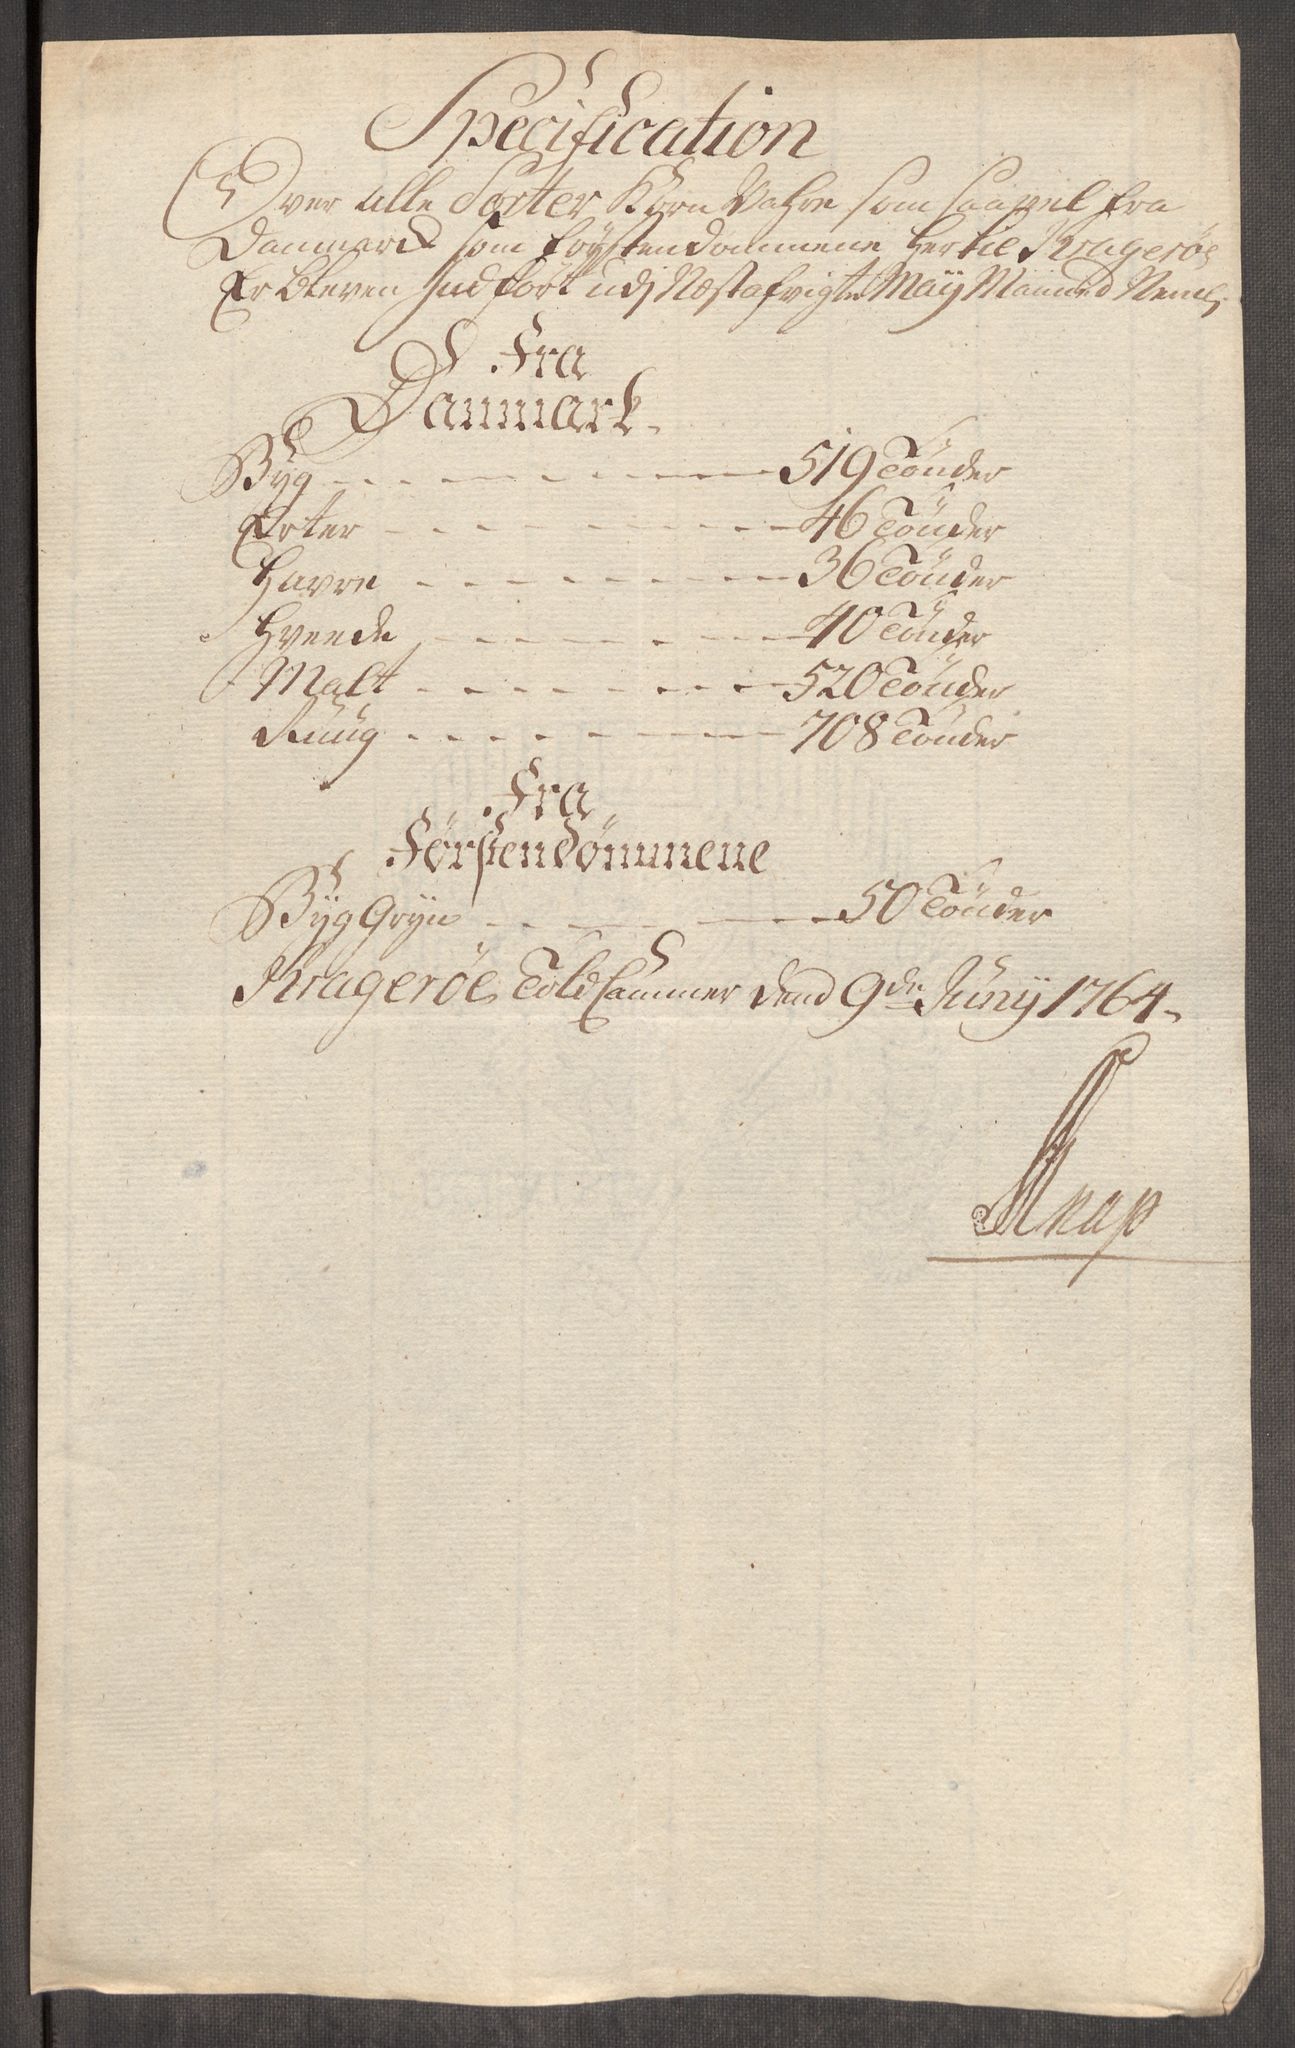 Specification
Over alle Sorter Korn Vahre som saavel fra
Danmarck som Føystendommene her til Kragerøe
Er bleven Indført udj Næstafvigte Maij Maaned Neml:
Fra
Danmark.
Byg 519 Tönder
Erter 46 Tönder
Havre 36 Tönder
Hveede 40 Tönder
Malt 520 Tönder
Ruug 708 Tönder
Fra
Førstendømmene
Byg Gryn 50 Tönder
Kragerøe Told Cammer dend 9de Junij 1764
Knap